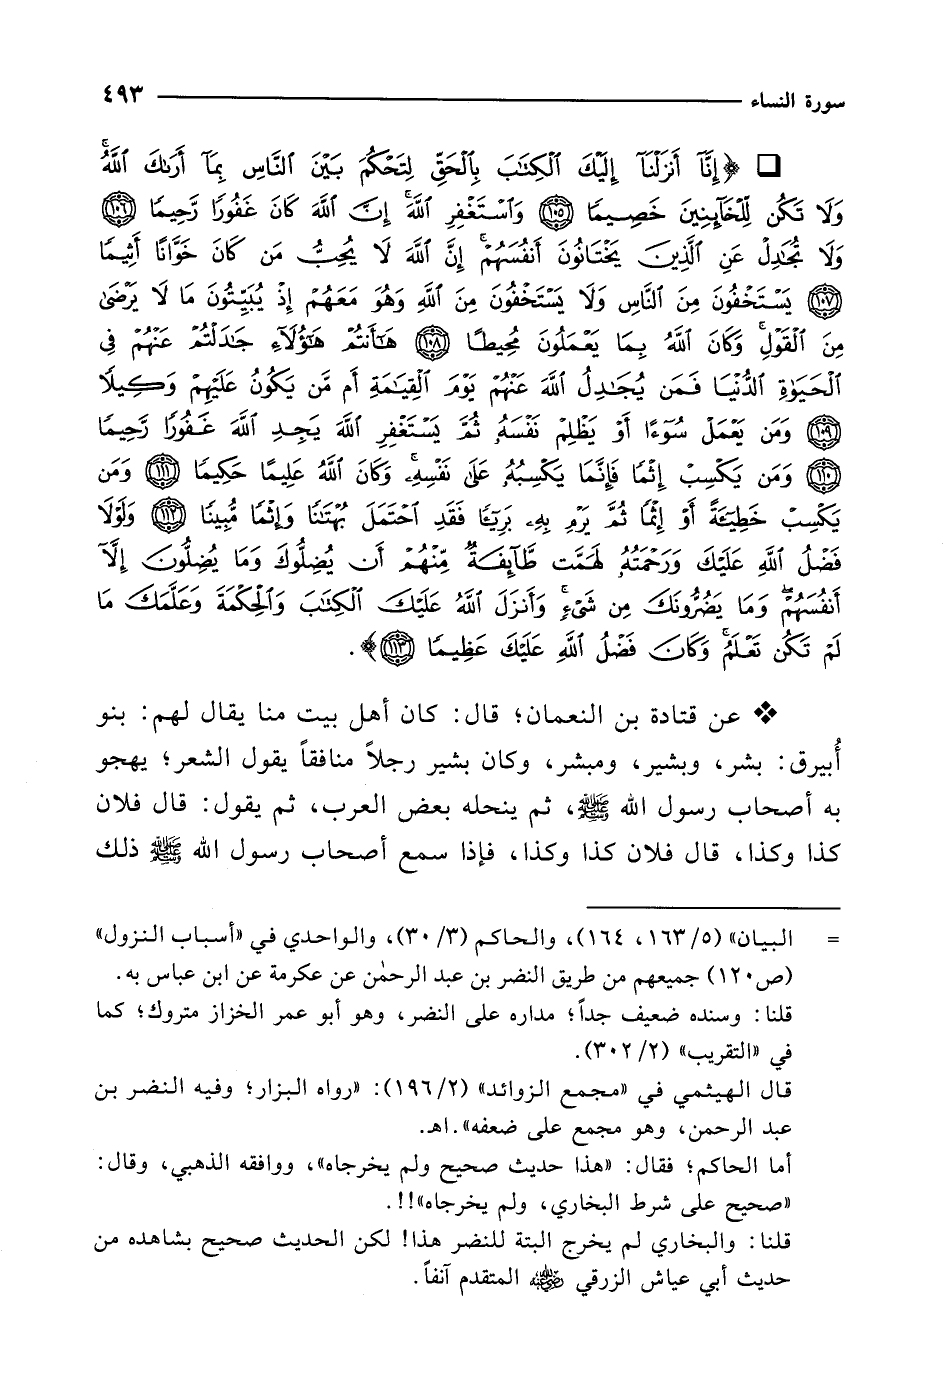 سورة النساء ٤٩٣
❑ ﴿إِنَّآ أَنزَلْنَآ إِلَيْكَ ٱلْكِتَٰبَ بِٱلْحَقِّ لِتَحْكُمَ بَيْنَ ٱلنَّاسِ بِمَآ أَرَىٰكَ ٱللَّهُ ۚ
وَلَا تَكُن لِّلْخَآئِنِينَ خَصِيمًا ﴿١٠٥﴾ وَٱسْتَغْفِرِ ٱللَّهَ ۖ إِنَّ ٱللَّهَ كَانَ غَفُورًا رَّحِيمًا ﴿١٠٦﴾
وَلَا تُجَٰدِلْ عَنِ ٱلَّذِينَ يَخْتَانُونَ أَنفُسَهُمْ ۚ إِنَّ ٱللَّهَ لَا يُحِبُّ مَن كَانَ خَوَّانًا أَثِيمًا
﴿١٠٧﴾ يَسْتَخْفُونَ مِنَ ٱلنَّاسِ وَلَا يَسْتَخْفُونَ مِنَ ٱللَّهِ وَهُوَ مَعَهُمْ إِذْ يُبَيِّتُونَ مَا لَا يَرْضَىٰ
مِنَ ٱلْقَوْلِ ۚ وَكَانَ ٱللَّهُ بِمَا يَعْمَلُونَ مُحِيطًا ﴿١٠٨﴾ هَٰٓأَنتُمْ هَٰٓؤُلَآءِ جَٰدَلْتُمْ عَنْهُمْ فِى
ٱلْحَيَوٰةِ ٱلدُّنْيَا فَمَن يُجَٰدِلُ ٱللَّهَ عَنْهُمْ يَوْمَ ٱلْقِيَٰمَةِ أَم مَّن يَكُونُ عَلَيْهِمْ وَكِيلًا
﴿١٠٩﴾ وَمَن يَعْمَلْ سُوٓءًا أَوْ يَظْلِمْ نَفْسَهُۥ ثُمَّ يَسْتَغْفِرِ ٱللَّهَ يَجِدِ ٱللَّهَ غَفُورًا رَّحِيمًا
﴿١١٠﴾ وَمَن يَكْسِبْ إِثْمًا فَإِنَّمَا يَكْسِبُهُۥ عَلَىٰ نَفْسِهِۦ ۚ وَكَانَ ٱللَّهُ عَلِيمًا حَكِيمًا ﴿١١١﴾ وَمَن
يَكْسِبْ خَطِيٓـَٔةً أَوْ إِثْمًا ثُمَّ يَرْمِ بِهِۦ بَرِيٓـًٔا فَقَدِ ٱحْتَمَلَ بُهْتَٰنًا وَإِثْمًا مُّبِينًا ﴿١١٢﴾ وَلَوْلَا
فَضْلُ ٱللَّهِ عَلَيْكَ وَرَحْمَتُهُۥ لَهَمَّت طَّآئِفَةٌ مِّنْهُمْ أَن يُضِلُّوكَ وَمَا يُضِلُّونَ إِلَّآ
أَنفُسَهُمْ ۖ وَمَا يَضُرُّونَكَ مِن شَىْءٍ ۚ وَأَنزَلَ ٱللَّهُ عَلَيْكَ ٱلْكِتَٰبَ وَٱلْحِكْمَةَ وَعَلَّمَكَ مَا
لَمْ تَكُن تَعْلَمُ ۚ وَكَانَ فَضْلُ ٱللَّهِ عَلَيْكَ عَظِيمًا ﴿١١٣﴾﴾.
❖ عن قتادة بن النعمان؛ قال: كان أهل بيت منا يقال لهم: بنو
أُبيرق: بشر، وبشير، ومبشر، وكان بشير رجلاً منافقاً يقول الشعر؛ يهجو
به أصحاب رسول الله ﷺ، ثم ينحله بعض العرب، ثم يقول: قال فلان
كذا وكذا، قال فلان كذا وكذا، فإذا سمع أصحاب رسول الله ﷺ ذلك
= البيان» (٥/ ١٦٣، ١٦٤)، والحاكم (٣/ ٣٠)، والواحدي في «أسباب النزول»
(ص١٢٠) جميعهم من طريق النضر بن عبد الرحمٰن عن عكرمة عن ابن عباس به.
قلنا: وسنده ضعيف جداً؛ مداره على النضر، وهو أبو عمر الخزاز متروك؛ كما
في «التقريب» (٢/ ٣٠٢).
قال الهيثمي في «مجمع الزوائد» (٢/ ١٩٦): «رواه البزار؛ وفيه النضر بن
عبد الرحمن، وهو مجمع على ضعفه».اهـ.
أما الحاكم؛ فقال: «هذا حديث صحيح ولم يخرجاه»، ووافقه الذهبي، وقال:
«صحيح على شرط البخاري، ولم يخرجاه»!!.
قلنا: والبخاري لم يخرج البتة للنضر هذا! لكن الحديث صحيح بشاهده من
حديث أبي عياش الزرقي رضي الله عنه المتقدم آنفاً.